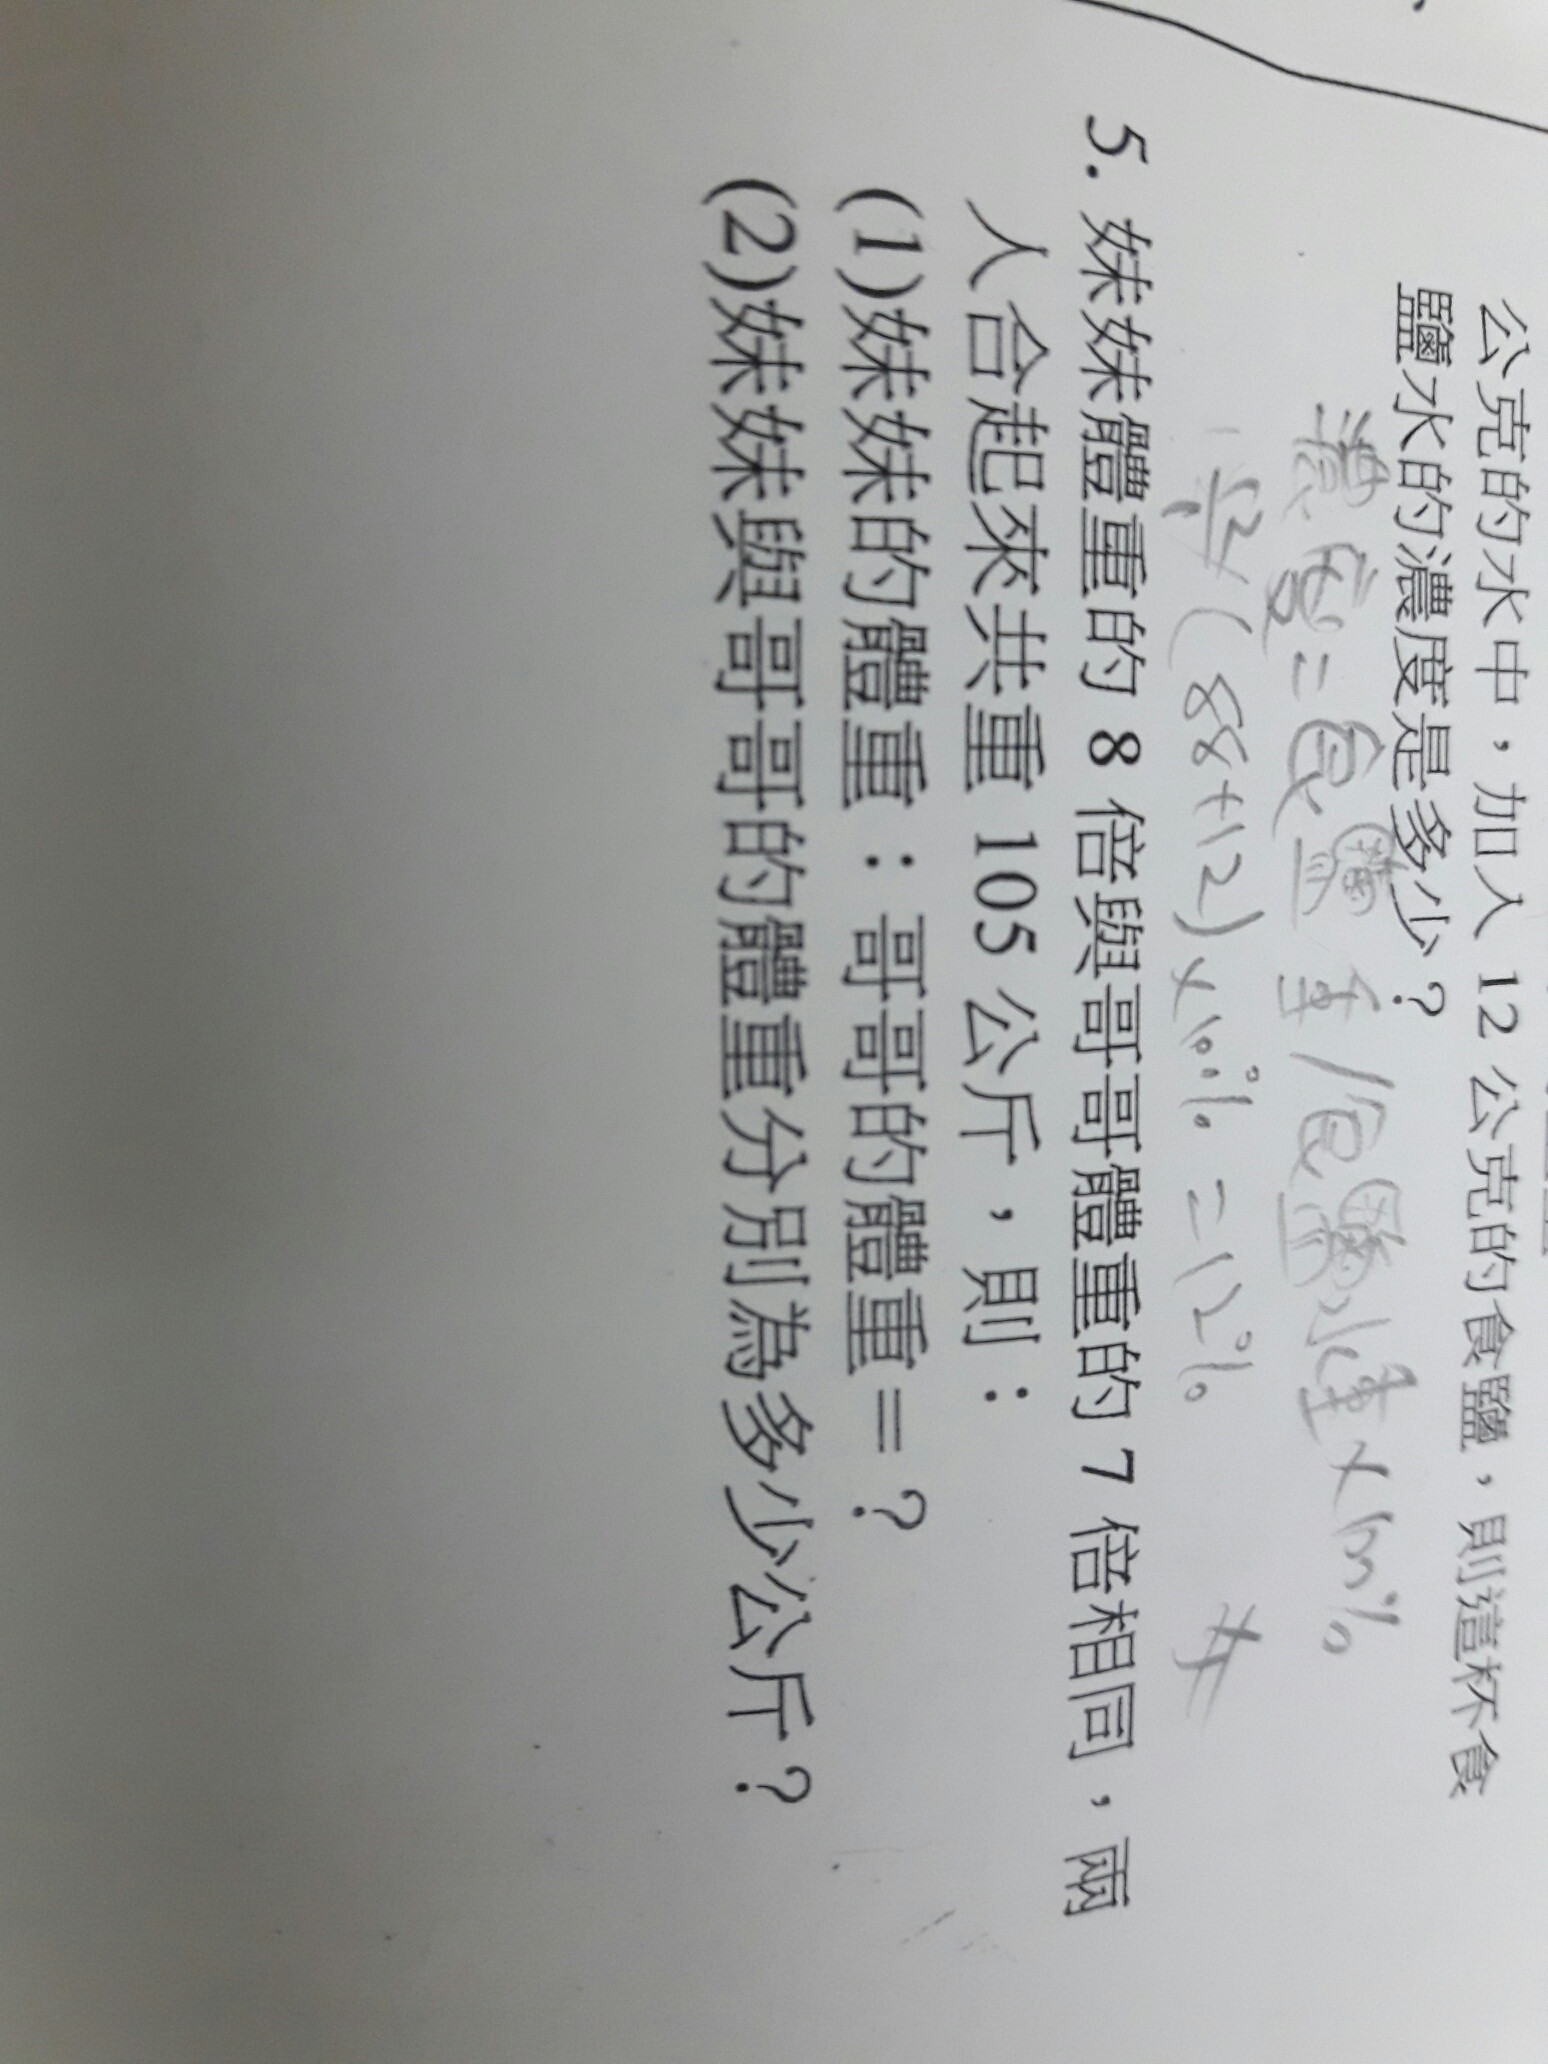 公克的水中，加入 12 公克的食鹽，則這杯食
鹽水的濃度是多少？
濃度=食鹽重/食鹽水重×100%
12/(88+12)×100%=12% #
5. 妹妹體重的 8 倍與哥哥體重的 7 倍相同，兩
人合起來共重 105 公斤，則：
(1)妹妹的體重：哥哥的體重=？
(2)妹妹與哥哥的體重分別為多少公斤？